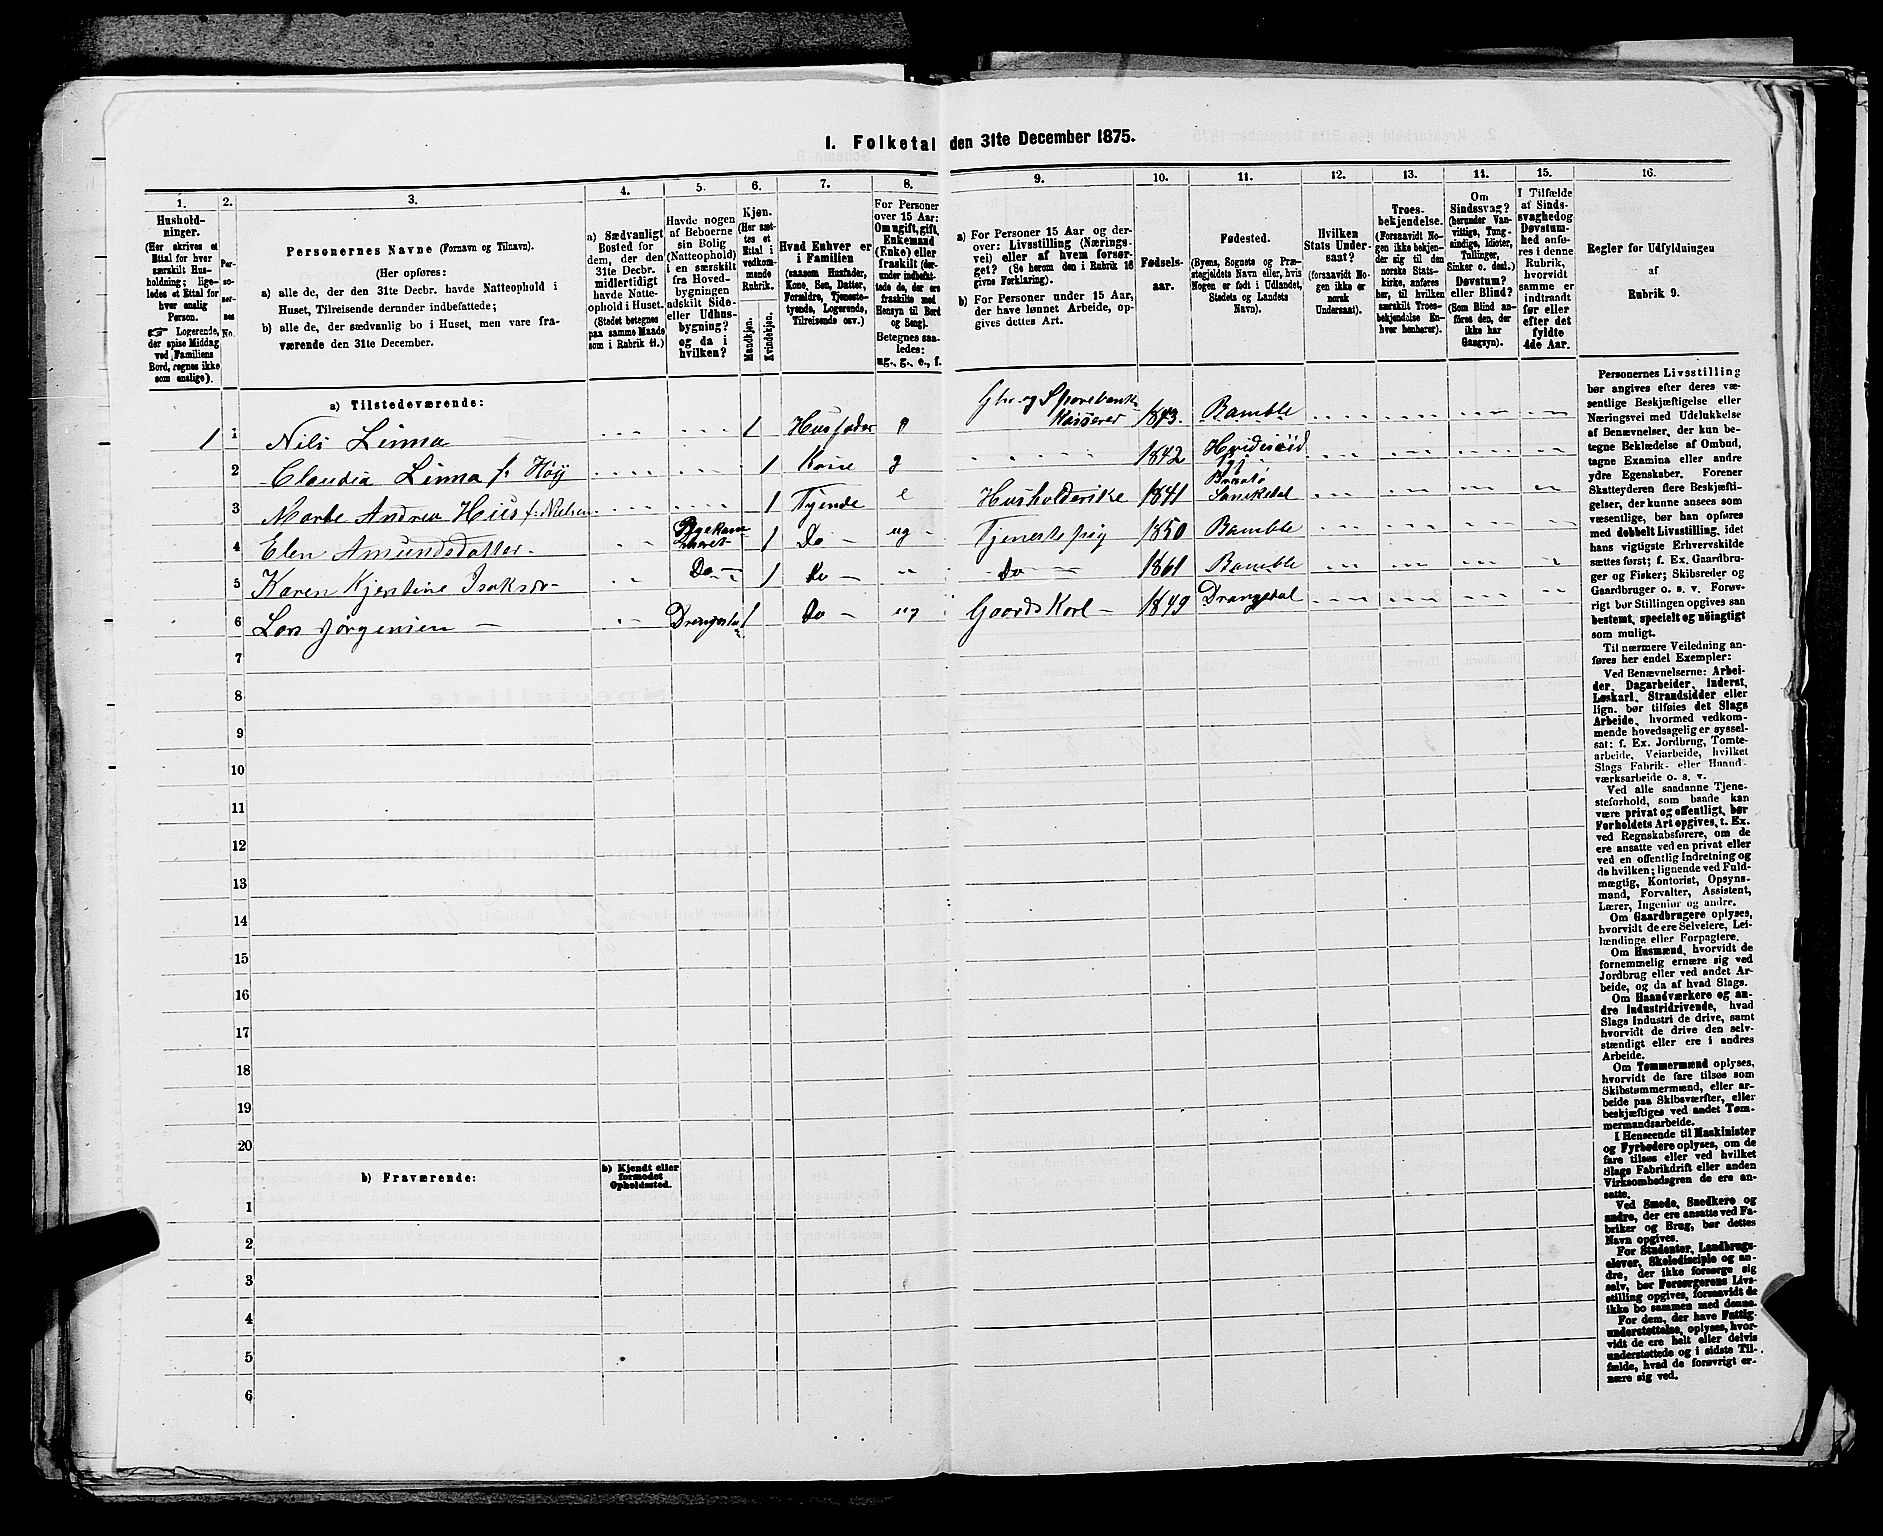 1. Folketal den 31te December 1875.
1. 2. 3. 4. 5. 6. 7. 8. 9. 10. 11. 12. 13. 14. 15. 16.
Hushold-
ninger.
(Her skrives et
Ettal for hver
særskilt Hus-
holdning; lige-
ledes et Ettal for
hver enslig
Person.
☞ Logerende,
der spise Middag
ved Familiens
Bord, regnes ikke
som enslige).
Per-
so-
ner-
nes
No.
Personernes Navne (Fornavn og Tilnavn).
(Her opføres:
a) alle de, der den 31te Decbr. havde Natteophold i
Huset, Tilreisende derunder indbefattede;
b) alle de, der sædvanlig bo i Huset, men vare fra-
værende den 31te December.
a) Sædvanligt
Bosted for
dem, der den
31te Decbr.
midlertidigt
havde Natte-
ophold i Huset.
(Stedet betegnes
paa samme Maade
som i Rubrik 11.)
Havde nogen
af Beboerne
sin Bolig
(Natteophold)
i en særskilt
fra Hoved-
bygningen
adskilt Side-
eller Udhus-
bygning?
og da i
hvilken?
Kjøn.
(Her sæt-
tes et
Ettal i
vedkom-
mende
Rubrik.
Mandkjøn.
Kvindekjøn.
Hvad Enhver er
i Familien
(saasom Husfader,
Kone, Søn, Datter,
Forældre, Tjeneste-
tyende, Logerende,
Tilreisende osv.)
For Personer
over 15 Aar:
Om ugift, gift,
Enkemand
(Enke) eller
fraskilt (der-
under indbefat-
tede de, der ere
fraskilte med
Hensyn til Bord
og Seng).
Betegnes saa-
ledes:
ug., g., e., f.
a) For Personer 15 Aar og der-
over: Livsstilling (Nærings-
vei) eller af hvem forsør-
get? (Se herom den i Rubrik 16
givne Forklaring).
b) For Personer under 15 Aar,
der have lønnet Arbeide, op-
gives dettes Art.
Fødsels-
aar.
Fødested.
(Byens, Sognets og Præ-
stegjeldets Navn eller, hvis
Nogen er født i Udlandet,
Stedets og Landets
Navn).
Hvilken
Stats Under-
saat?
(forsaavidt No-
gen ikke er
norsk
Undersaat).
Troes-
bekjendelse.
(Forsaavidt No-
gen ikke bekjen-
der sig til den
norske Stats-
kirke, anføres
her, til hvilken
særskilt Troes-
bekjendelse En-
hver henhører).
Om
Sindssvag?
(herunder Van-
vittige, Tung-
sindige, Idioter,
Tullinger,
Sinker o. desl.)
Døvstum?
eller Blind?
(Som Blind an-
føres den, der
ikke har
Gangsyn).
I Tilfælde
af Sinds-
svaghed og
Døvstum-
hed anfø-
res i denne
Rubrik,
hvorvidt
samme er
indtraadt
før eller
efter det
fyldte
4de Aar.
Regler for Udfyldningen
af
Rubrik 9.
a) Tilstedeværende:
1 1 Nils Linna 1 Husfader g Gbr og Sparebank- Kasserer 1843. Bamble
2 Claudia Linna f. Höy 1 Kone g 1842 Hvidesöid
3 Marte Andrea Hus f: Nielsen 1 Tyende e Husholderske 1841 Sanikedal
4 Elen Amundsdatter 1 Do ug Tjenestepig 1850 Bamble
5 Karen Kjerstine Isaksd. Do 1 Do Do 1861 Bamble
6 Lars Jörgensen Drengestu 1 Do ug Gaards Karl 1849 Drangedal
7
8
9
10
11
12
13
14
15
16
17
18
19
20
b) Fraværende:
b) Kjendt eller
formodet
Opholdssted.
1
2
3
4
5
6
Personernes Livsstilling
bør angives efter deres væ-
sentlige Beskjæftigelse eller
Næringsvei med Udelukkelse
af Benævnelser, der kun be-
tegne Beklædelse af Ombud,
tagne Examina eller andre
ydre Egenskaber. Forener
Skatteyderen flere Beskjæfti-
gelser, der kunne ansees som
væsentlige, bør han opføres
med dobbelt Livsstilling, idet
hans vigtigste Erhvervskilde
sættes først; f. Ex. Gaardbru-
ger og Fisker; Skibsreder og
Gaardbruger o. s. v. Forøv-
rigt bør Stillingen opgives saa
bestemt, specielt og nøiagtigt
som muligt.
Til nærmere Veiledning an-
føres her endel Exempler:
Ved Benævnelserne: Arbei-
der, Dagarbeider, Inderst,
Løskarl, Strandsidder eller
lign. bør tilføies det Slags
Arbeide, hvormed vedkom-
mende hovedsagelig er syssel-
sat; f. Ex. Jordbrug, Tomte-
arbeide, Veiarbeide, hvilket
Slags Fabrik- eller Haand-
værksarbeide o. s. v.
Ved alle saadanne Tjene-
steforhold, som baade kan
være privat og offentligt, bør
Forholdets Art opgives, t. Ex.
ved Regnskabsførere, om de
ere ansatte ved en privat eller
ved en offentlig Indretning og
da hvilken; lignende ved Fuld-
mægtig, Kontorist, Opsyns-
mand, Forvalter, Assistent,
Lærer, Ingeniør og andre.
Om Gaardbrugere oplyses,
hvorvidt de ere Selveiere, Lei-
lændinge eller Forpagtere.
Om Husmænd, hvorvidt de
fornemmelig ernære sig ved
Jordbrug eller ved andet Ar-
beide, og da af hvad Slags.
Om Haandværkere og an-
dre Industridrivende, hvad
Slags Industri de drive, samt
hvorvidt de drive den selv-
stændigt eller ere i andres
Arbeide.
Om Tømmermænd oplyses,
hvorvidt de fare tilsøs som
Skibstømmermænd, eller ar-
beide paa Skibsværfter, eller
beskjæftiges ved andet Tøm-
mermandsarbeide.
I Henseende til Maskinister
og Fyrbødere oplyses, om de
fare tilsøs eller ved hvilket
Slags Fabrikdrift eller anden
Virksomhedsgren de ere an-
satte.
Ved Smede, Snedkere og
andre, der ere ansatte ved Fa-
briker og Brug, bør dettes
Navn opgives.
For Studenter, Landbrugs-
elever, Skoledisciple og an-
dre, der ikke forsørge sig
selv, bør Forsørgerens Livs-
stilling opgives, forsaavidt de
ikke bo sammen med denne.
For dem, der have Fattig-
understøttelse, oplyses, hvor-
vidt de ere helt eller delvis
understøttede og i sidste Til-
fælde, hvad de forøvrigt er-
nære sig ved.